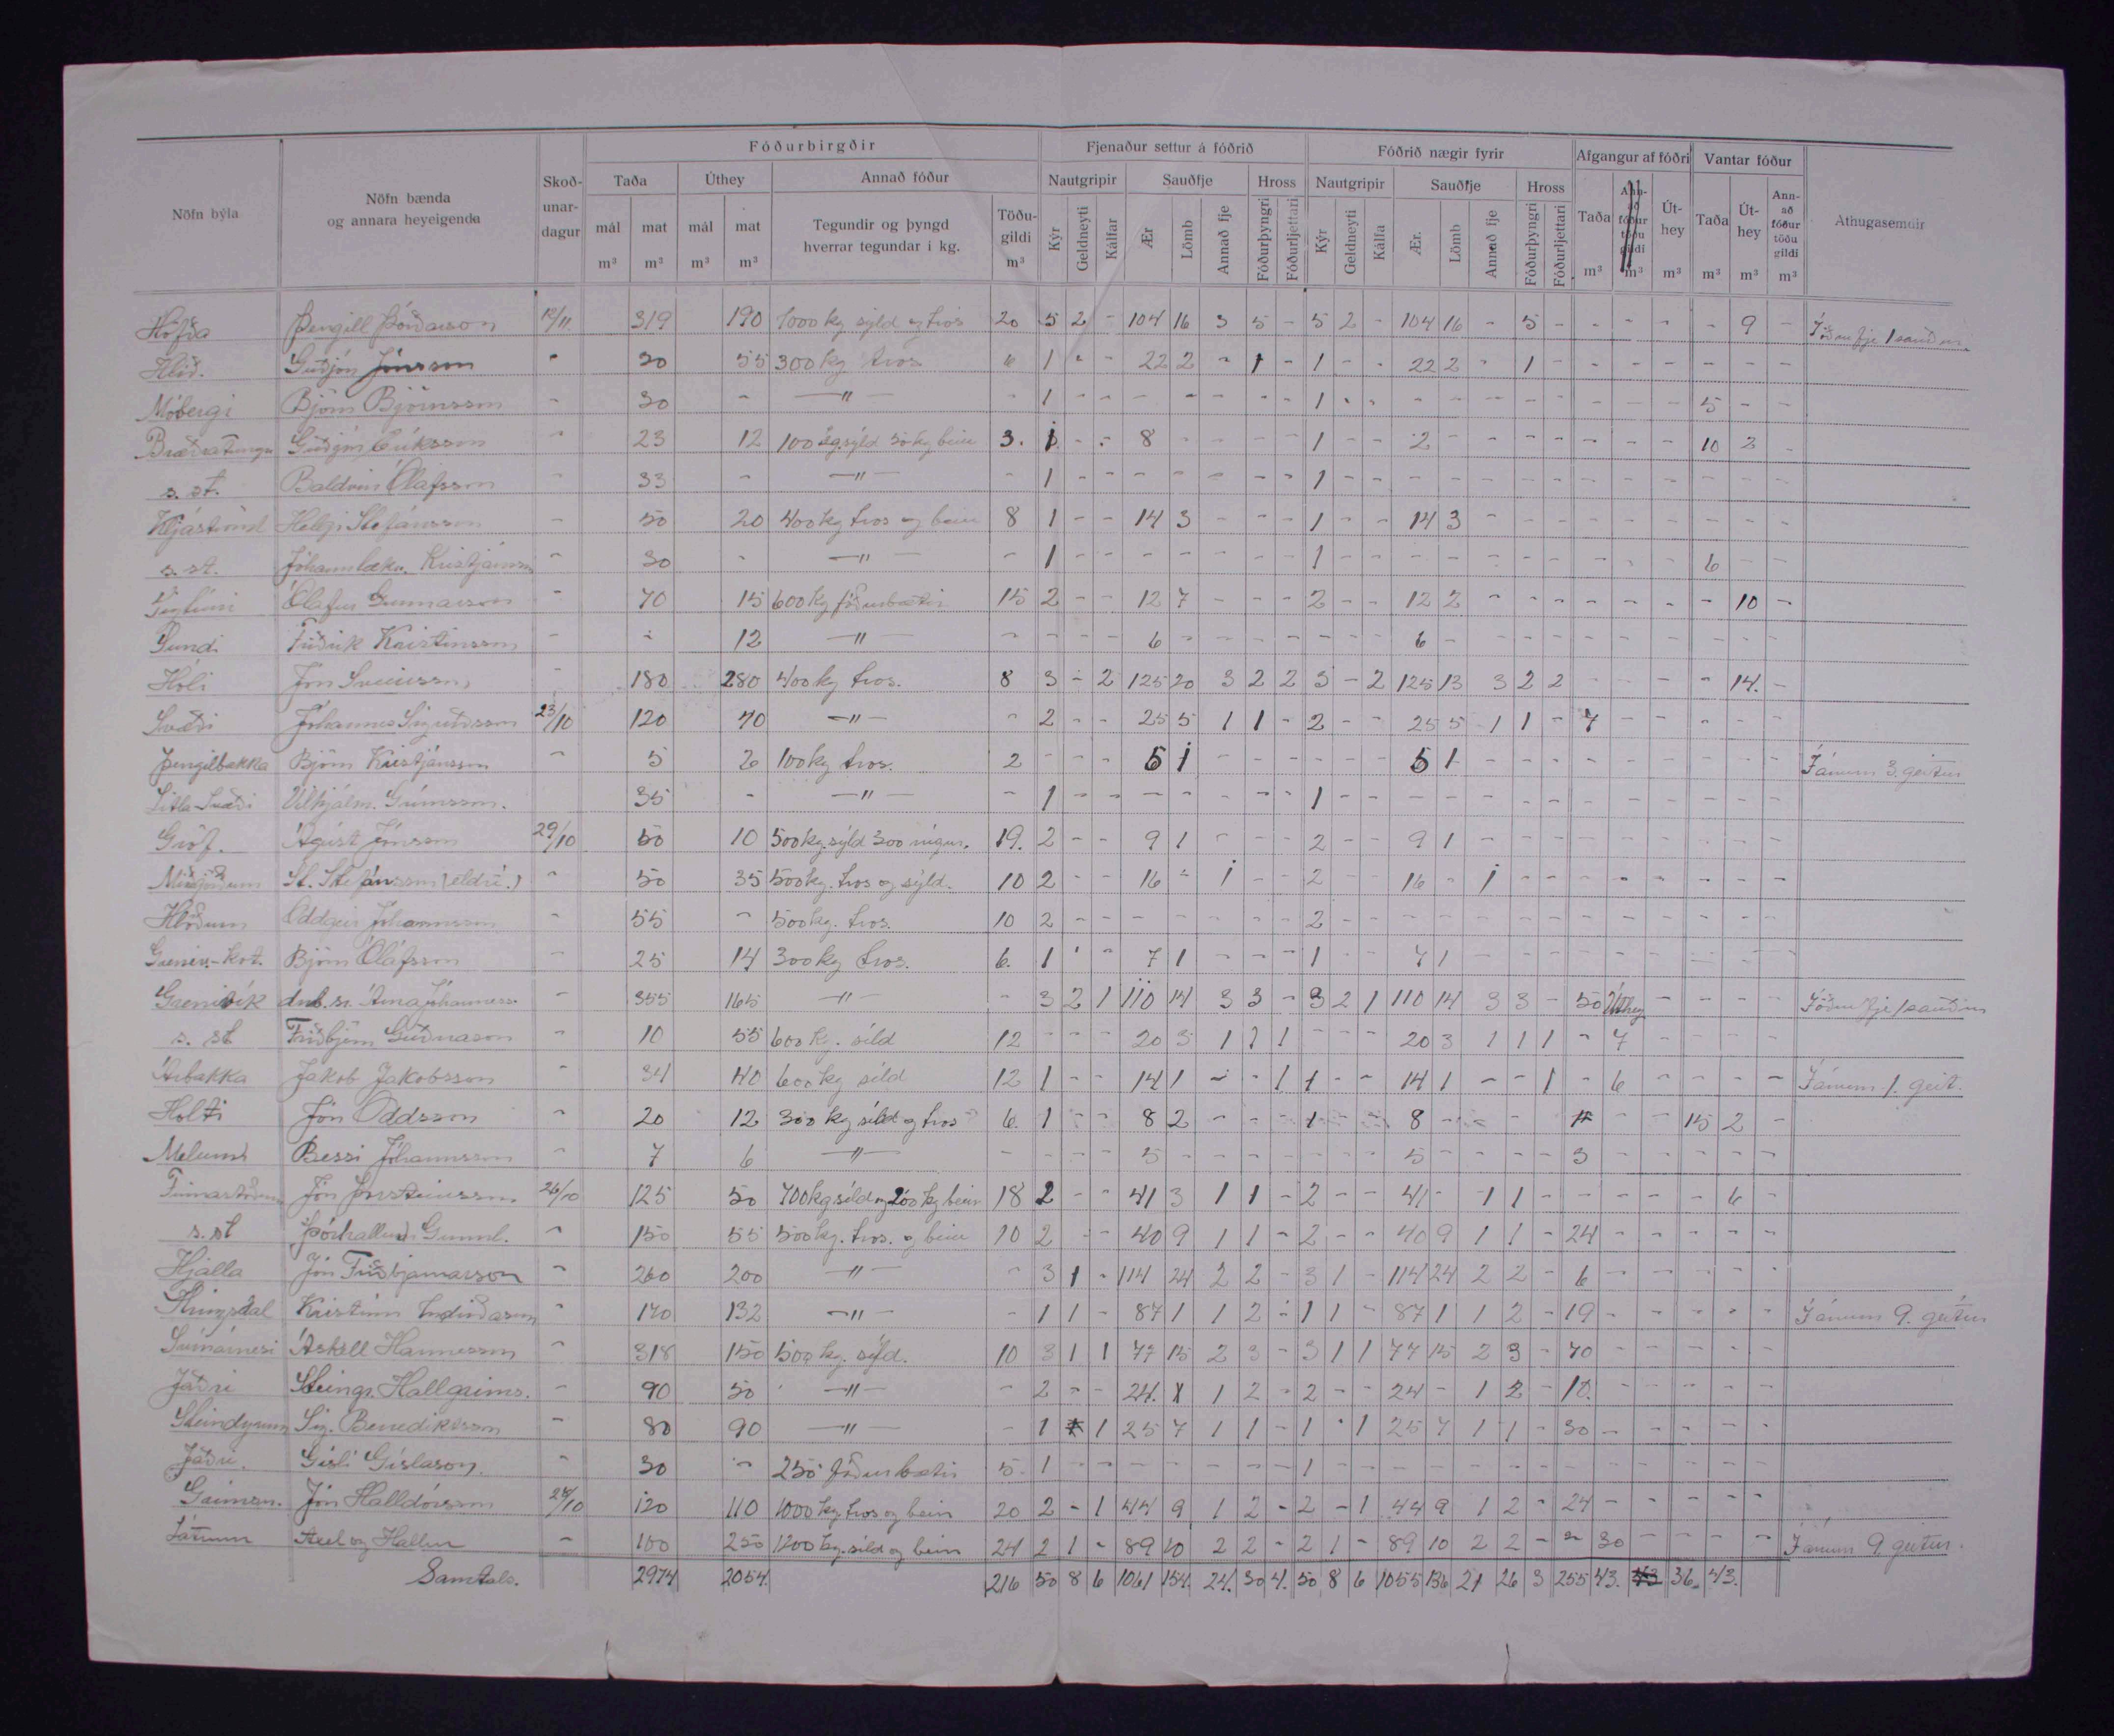 Fóðurbirgðir Fjenaður settur á fóðrið Fóðrið nægir fyrir Afgangur af fóðri Vantar fóður
Nöfn býla Nöfn bænda og annara heyeigenda Skoð-unar-dagur Taða Úthey Annað fóður Nautgripir Sauðfje Hross Nautgripir Sauðfje Hross Taða Ann-að fóður töðu gildi Út-hey Taða Út-hey Ann-að fóður töðu gildi Athugasemdir
mál mat mál mat Tegundir og þyngd hverrar tegundar í kg. Töðu-gildi Kýr Geldneyti Kálfar Ær Lömb Annað fje Fóðurþyngri Fóðurljettari Kýr Geldneyti Kálfa Ær. Lömb Annað fje Fóðurþyngri Fóðurljettari
m³ m³ m³ m³ m³ m³ m³ m³ m³ m³ m³
Höfða Þengill Þórðarson 12/11 319 190 1000 kg síld og tros 20 5 2 - 104 16 3 5 - 5 2 - 104 16 - 5 - - - - - 9 - Í öðru fje 1 sauður
Hlíð. Guðjón Jónsson " 30 55 300 kg tros 6 1 - - 22 2 - 1 - 1 - - 22 2 - 1 - - - - - - -
Móbergi Björn Björnsson - 30 - -"- - 1 - - - - - - - 1 - - - - - - - - - - 5 - -
Bræðratungu Guðjón Eiríksson " 23 12 100 kg síld 50 kg bein 3. 1 - - 8 - - - - 1 - - 2 - - - - - - - 10 2 -
s. st. Baldvin Ólafsson - 33 - -"- - 1 - - - - - - - 1 - - - - - - - - - - - - -
Helgi Stefánsson - 50 20 400 kg tros og bein 8 1 - - 14 3 - - - 1 - - 14 3 - - - - - - - - -
s. st. Jóhann Kristjánsson - 30 - -"- - 1 - - - - - - - 1 - - - - - - - - - - 6 - -
Ólafur Gunnarsson - 70 15 600 kg fóðurbætir 15 2 - - 12 7 - - - 2 - - 12 2 - - - - - - - 10 -
Grund Friðrik Kristinsson - - 12 -"- - - - - 6 - - - - - - - 6 - - - - - - - - - -
Hóli Jón Sveinsson - 180 280 400 kg tros. 8 3 - 2 125 20 3 2 2 3 - 2 125 13 3 2 2 - - - - 14. -
Svæði Jóhannes Sigurðsson 23/10 120 70 -"- - 2 - - 25 5 1 1 - 2 - - 25 5 1 1 - 7 - - - - -
Þengilbakka Björn Kristjánsson - 5 2 100 kg tros. 2 - - - 5 1 - - - - - - 5 1 - - - - - - - - - Í ánum 3 geitur
Litla Svæði Vilhjálm. Grímsson. 35 - -"- - 1 - - - - - - - 1 - - - - - - - - - - - - -
Gröf. Ágúst Jónsson 29/10 50 10 500 kg. síld 300 19. 2 - - 9 1 - - - 2 - - 9 1 - - - - - - - - -
Miðgörðum St. Stefánsson (eldri.) " 50 35 500 kg. tros og síld. 10 2 - - 16 - 1 - - 2 - - 16 - 1 - - - - - - - -
Hlöðum Oddgeir Jóhannsson " 55 - 500 kg. tros. 10 2 - - - - - - - 2 - - - - - - - - - - - - -
Greniv.-kot. Björn Ólafsson - 25 14 300 kg tros. 6. 1 - - 7 1 - - - 1 - - 7 1 - - - - - - - - -
Grenivík dnb. sr. Árna Jóhanness. - 355 165 -"- - 3 2 1 110 14 3 3 - 3 2 1 110 14 3 3 - 50 Úthey - - - - Í öðru fje 1 sauður
s. st Friðbjörn Guðnason - 10 55 600 kg. síld 12 - - - 20 3 1 1 1 - - - 20 3 1 1 1 - 7 - - - -
Árbakka Jakob Jakobsson - 34 40 600 kg síld 12 1 - - 14 1 - - 1 1 - - 14 1 - - 1 - 6 - - - - Í ánum 1. geit.
Holti Jón Oddsson " 20 12 300 kg síld og tros 6. 1 - - 8 2 - - - 1 - - 8 - - - - - - 15 2 -
Melum Bessi Jóhannsson " 7 6 -"- - - - - 5 - - - - - - - 5 - - - - 3 - - - - -
Finnastöðum Jón Þorsteinsson 26/10 125 50 700 kg síld og 200 kg bein 18 2 - - 41 3 1 1 - 2 - - 41 - 1 1 - - - - - 6 -
s. st Þórhallur Gunnl. - 150 55 500 kg. tros. og bein 10 2 - - 40 9 1 1 - 2 - - 40 9 1 1 - 24 - - - - -
Hjalla Jón Friðbjarnarson - 260 200 -"- - 3 1 - 114 24 2 2 - 3 1 - 114 24 2 2 - 6 - - - - -
Hringsdal Kristinn Indriðason " 170 132 -"- - 1 1 - 87 1 1 2 - 1 1 - 87 1 1 2 - 19 - - - - - Í ánum 9. geitur
Áskell Hannesson " 318 150 500 kg. síld. 10 3 1 1 77 15 2 3 - 3 1 1 77 15 2 3 - 70 - - - - -
Jaðri Steingr. Hallgríms. - 90 50 -"- - 2 - - 24. 1 2 - 2 - - 24 - 1 2 - 10. - - - - -
Steindyrum Sig. Benediktsson - 80 90 -"- - 1 1 25 7 1 1 - 1 - 1 25 7 1 1 - 30 - - - - -
Jaðri. Gísli Gíslason. - 30 - 250 fóðurbætir 5. 1 - - - - - - - 1 - - - - - - - - - - - - -
Jón Halldórsson 24/10 120 110 1000 kg tros og bein 20 2 - 1 44 9 1 2 - 2 - 1 44 9 1 2 - 24 - - - - -
Látrum Axel og Hallur - 100 250 1200 kg. síld og bein 24 2 1 - 89 10 2 2 - 2 1 - 89 10 2 2 - - 30 - - - - Í ánum 9. geitur.
Samtals. 2974 2054. 216 50 8 6 1061 154. 24. 30 4. 50 8 6 1055 136 21 26 3 255 43. 36. 43.